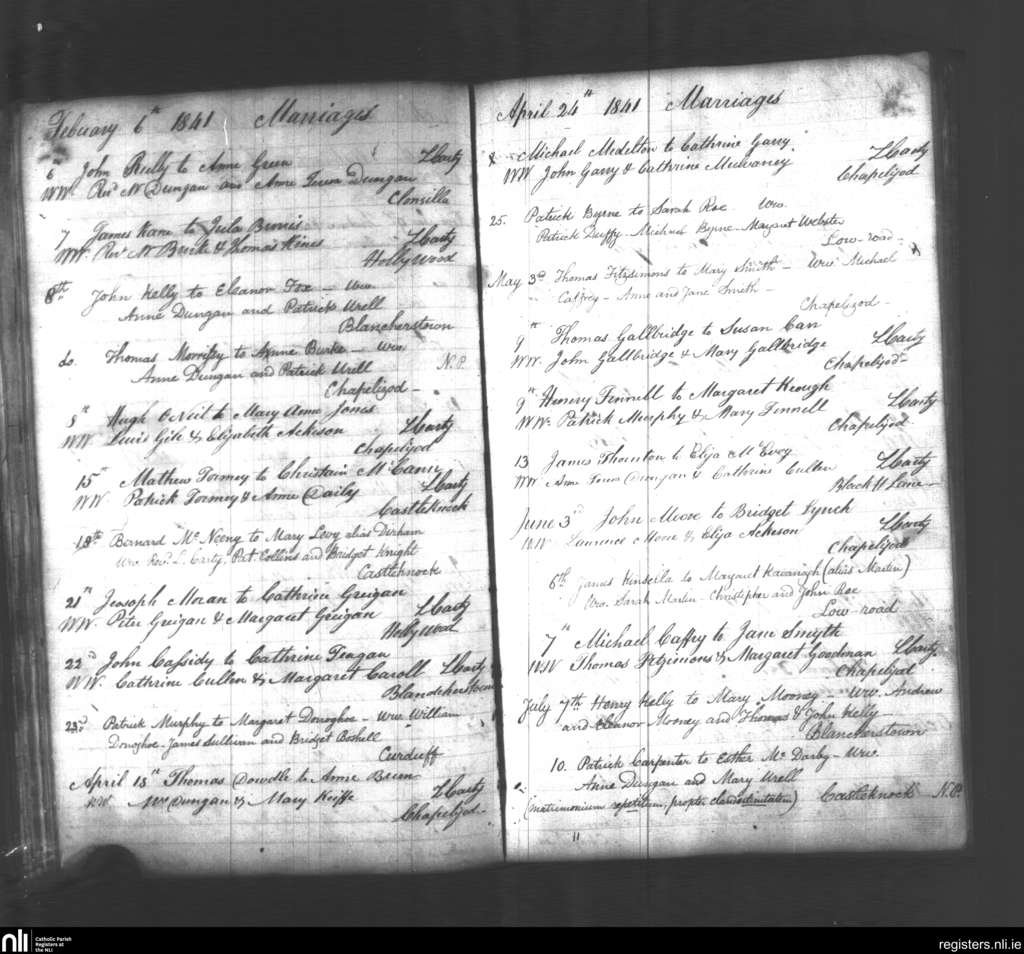 Febuary 6th 1841 Marriages
6 John Reilly to Anne Green LCarty
WW. Revd W Dungan and Anne Teresa Dungan
Clonsilla
7 James Kane to Jula Binnis LCarty
WW. Revd W & Thomas Hines
Holly Wood
8th John Kelly to Eleanor Fox — Ww.
Anne Dungan and Patrick Urell
Blancherstown
do. Thomas Morrissy to Anne Burke — Ww.
Anne Dungan and Patrick Urell N.P.
Chapelizod —
8th Hugh O Neil to Mary Anne Jones
WW Lewis Gile & Elizabeth Ackison LCarty
Chapelizod
15th Mathew Tormey to Christain McCann
WW. Patrick Tormey & Anne Daily LCarty
Castleknock
18th Barnard Mc to Mary Levy alias Dirham
Ww. Revd L. Carty, Pat Collins and Bridget Knight
Castleknock
21st Jeosoph Moran to Cathrine Greigan
WW. Peter Greigan & Margaret Greigan LCarty
Holly Wood
22d John Cassidy to Cathrine Teagan
WW. Cathrine Cullen & Margaret Caroll LCarty
Blancherstown
23d Patrick Murphy to Margaret Donoghoe — Ww. William
Donoghoe - James Sullivan and Bridget Boshell
Curduff
April 18th Thomas Dowdle to Anne Brien
WW. Mrs Dungan & Mary Keiffe LCarty
Chapelizod —
April 24th 1841 Marriages
Michael Medelton to Cathrine Garry
WW John Garry & Cathrine Mulvaney LCarty
Chapelizod
25. Patrick Byrne to Sarah Roe Ww.
Patrick Duffy - Michael Byrne - Margaret Webster
Low-road -
May 3d Thomas Fitzsimons to Mary Smith — Ww Michael
Caffrey - Anne and Jane Smith —
Chapelizod —
9th Thomas Gallbridge to Susan Carr
WW. John Gallbridge & Mary Gallbridge LCarty
Chapelizod
9th Henry Fennell to Margaret Keough
WW. Patrick Murphy & Mary Fennell LCarty
Chapelizod
13 James Thornton to Eliza McEvoy
WW. Anne Teresa Dungan & Cathrine Cullen LCarty
Black H Lane —
June 3d John Moore to Bridget Lynch
WW Laurence Moore & Eliza Ackeson LCarty
Chapelizod
6th James Kinseila to Margaret Kavanagh (alias Martin)
Ww. Sarah Martin - Christopher and John Roe
Low-road
7th Michael Caffry to Jane Smyth
WW Thomas Fitzsimons & Margaret Goodman LCarty
Chapelizod
July 7th Henry Kelly to Mary Mooney — Ww. Andrew
and Eleanor Mooney and Thomas & John Kelly —
Blancherstown
10. Patrick Carpenter to Esther McDarby - Ww.
Anne Dungan and Mary Urell
(matrimonium repetitum, propter clandestinitatem) Castleknock N.P.
11
nli
Catholic Parish
Registers at
the NLI
registers.nli.ie